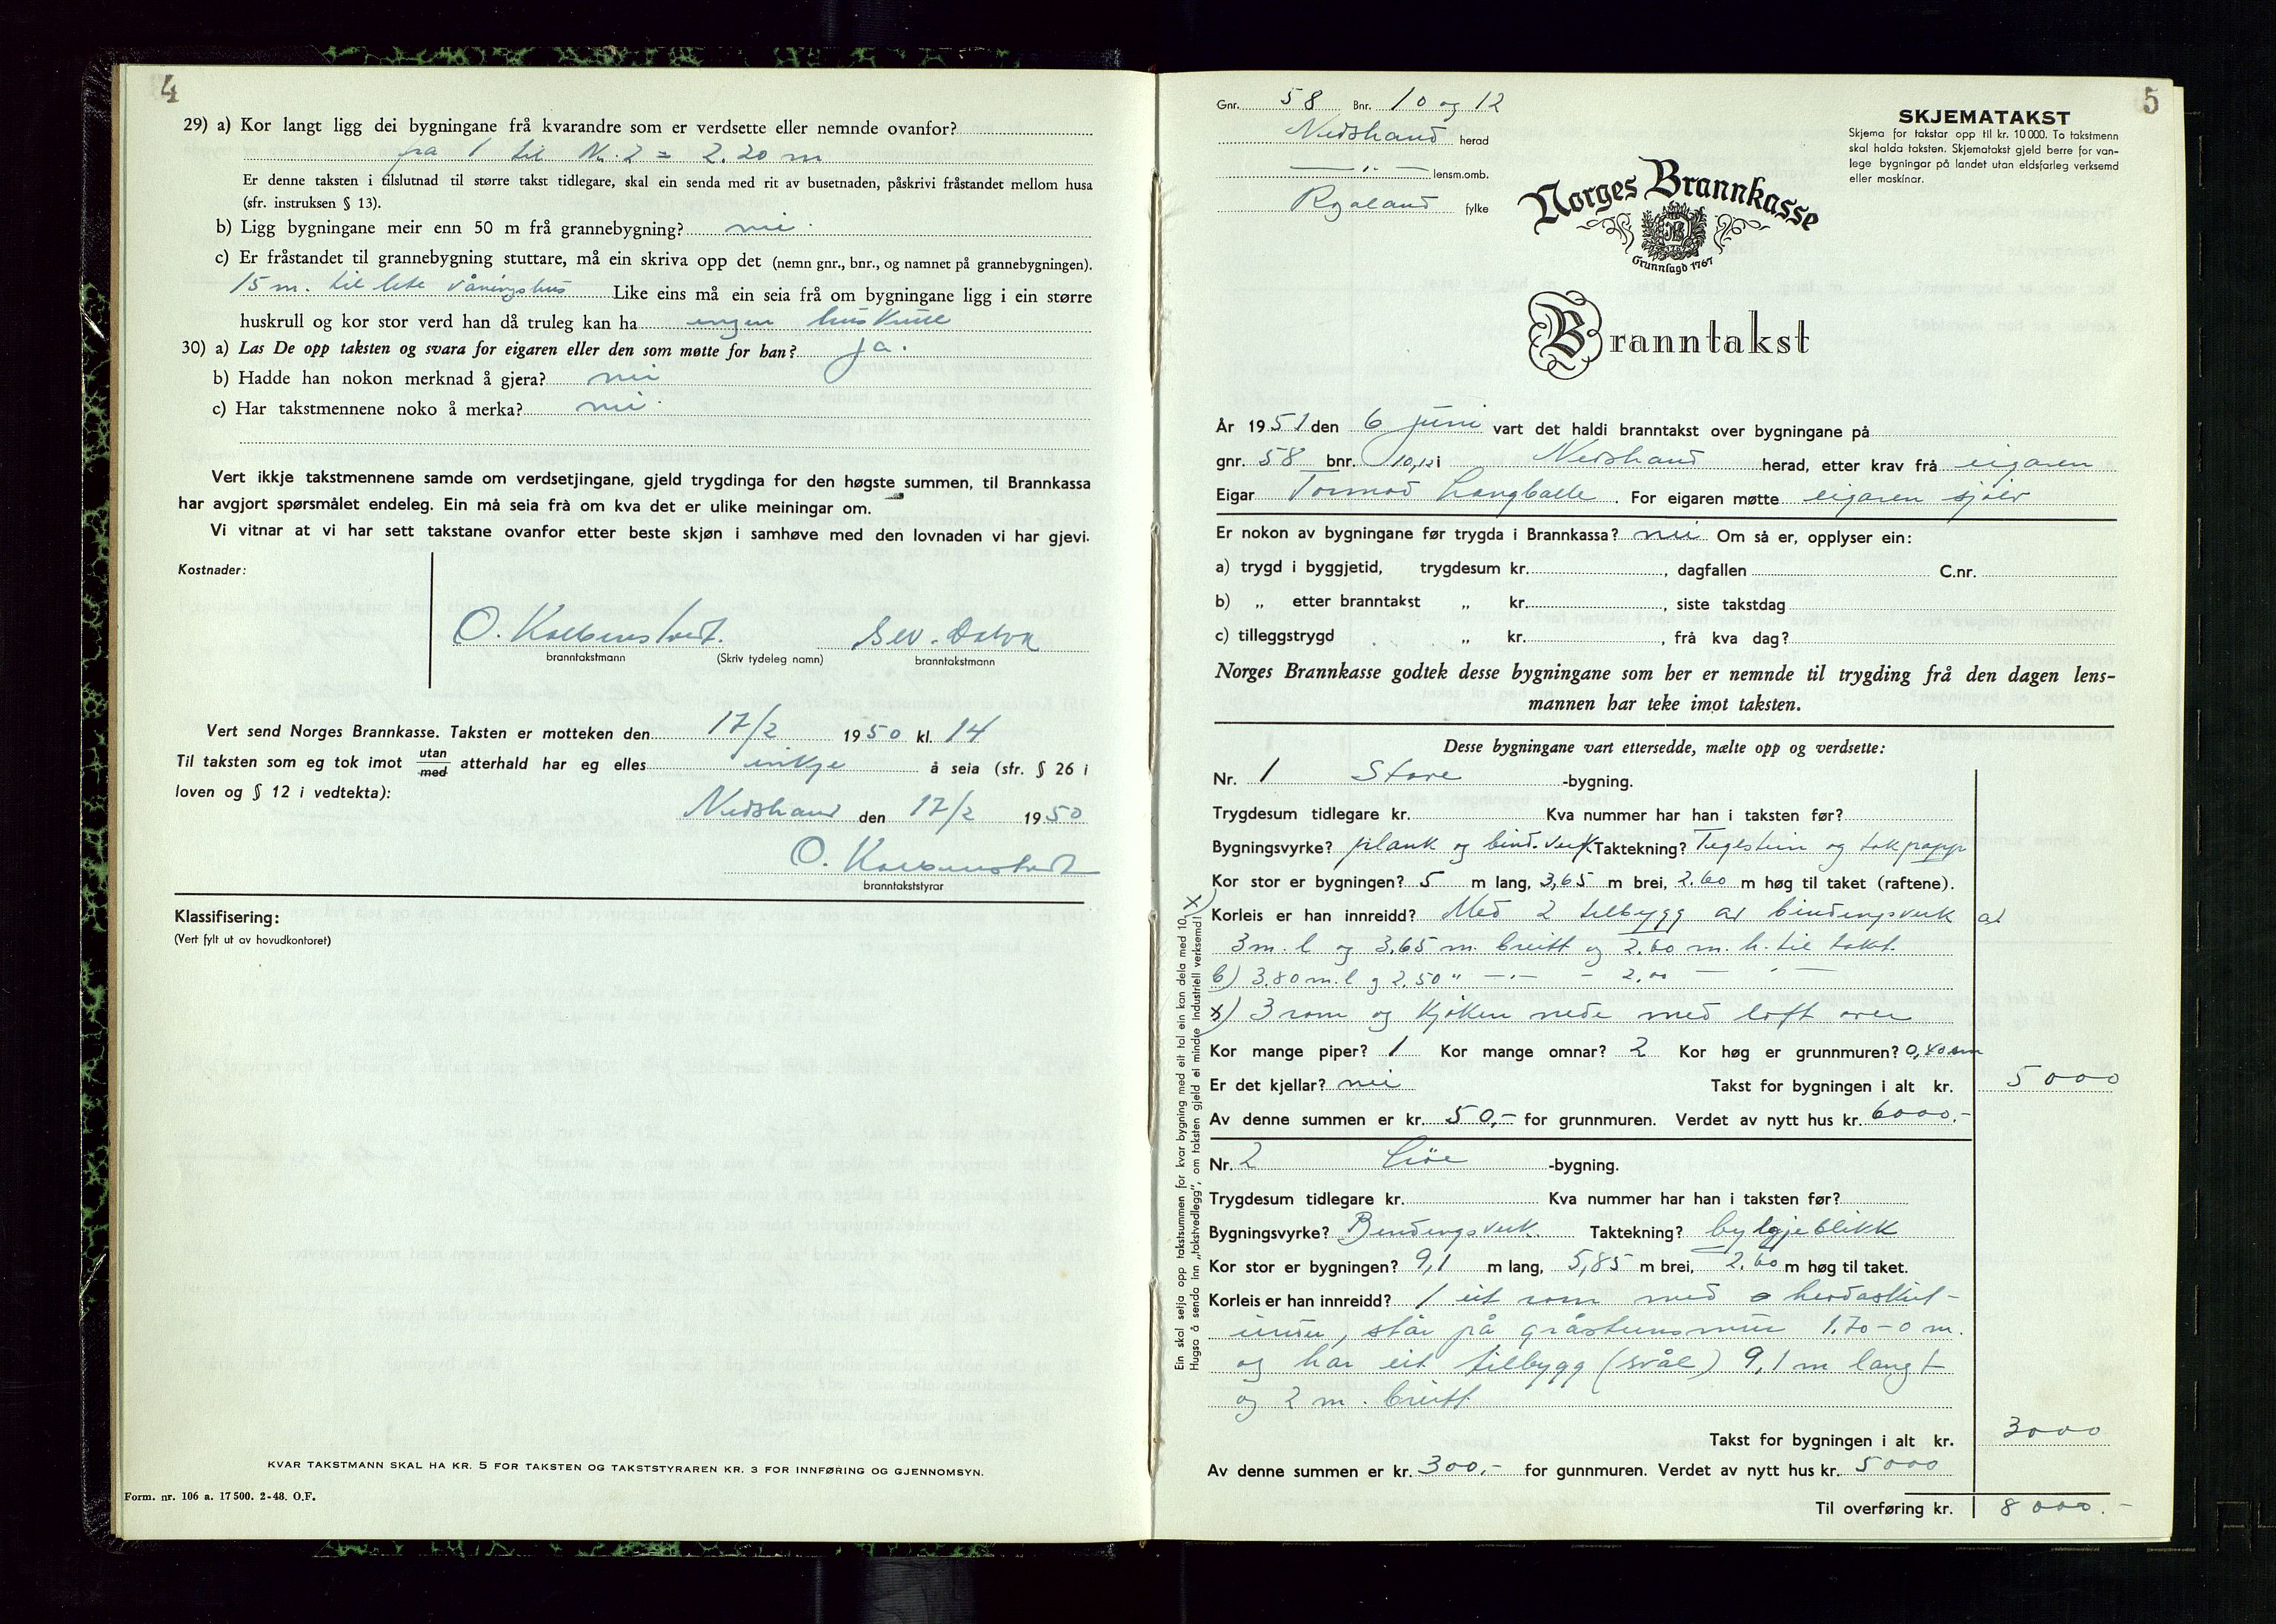 4
29) a) Kor langt ligg dei bygningane frå kvarandre som er verdsette eller nemnde ovanfor?
fra 1 til Nr. 2 = 2.20 m
Er denne taksten i tilslutnad til større takst tidlegare, skal ein senda med rit av busetnaden, påskrivi fråstandet mellom husa
(sfr. instruksen § 13).
b) Ligg bygningane meir enn 50 m frå grannebygning? nei
c) Er fråstandet til grannebygning stuttare, må ein skriva opp det (nemn gnr., bnr., og namnet på grannebygningen).
15 m. til lite våningshus Like eins må ein seia frå om bygningane ligg i ein større
huskrull og kor stor verd han då truleg kan ha ingen huskrull
30) a) Las De opp taksten og svara for eigaren eller den som møtte for han? ja.
b) Hadde han nokon merknad å gjera? nei
c) Har takstmennene noko å merka? nei.
Vert ikkje takstmennene samde om verdsetjingane, gjeld trygdinga for den høgste summen, til Brannkassa
har avgjort spørsmålet endeleg. Ein må seia frå om kva det er ulike meiningar om.
Vi vitnar at vi har sett takstane ovanfor etter beste skjøn i samhøve med den lovnaden vi har gjevi.
Kostnader:
O.
branntakstmann (Skriv tydeleg namn) branntakstmann
Vert send Norges Brannkasse. Taksten er motteken den 17/2 1950 kl. 14
Til taksten som eg tok imot utan/med atterhald har eg elles inkje å seia (sfr. § 26 i
loven og § 12 i vedtekta):
Nedstrand den 17/2 1950
O.
branntakststyrar
Klassifisering:
(Vert fylt ut av hovudkontoret)
KVAR TAKSTMANN SKAL HA KR. 5 FOR TAKSTEN OG TAKSTSTYRAREN KR. 3 FOR INNFØRING OG GJENNOMSYN.
Form. nr. 106 a. 17 500. 2-48. O.F.
5
Gnr. 58 Bnr. 10 og 12
Nedstrand herad
— " — lensm.omb.
Rogaland fylke
SKJEMATAKST
Skjema for takstar opp til kr. 10 000. To takstmenn
skal halda taksten. Skjematakst gjeld berre for van-
lege bygningar på landet utan eldsfarleg verksemd
eller maskinar.
Norges Brannkasse
Grunnlagd 1767
Branntakst
År 1951 den 6 juni vart det haldi branntakst over bygningane på
gnr. 58 bnr. 10,12 i Nedstrand herad, etter krav frå eigaren
Eigar Tormod Langballe. For eigaren møtte eigaren sjølv
Er nokon av bygningane før trygda i Brannkassa? nei Om så er, opplyser ein:
a) trygd i byggjetid, trygdesum kr. , dagfallen C.nr.
b) „ etter branntakst „ kr. , siste takstdag
c) tilleggstrygd „ kr. , frå kva dag?
Norges Brannkasse godtek desse bygningane som her er nemnde til trygding frå den dagen lens-
mannen har teke imot taksten.
Desse bygningane vart ettersedde, mælte opp og verdsette:
Nr. 1 Stove -bygning.
Trygdesum tidlegare kr. Kva nummer har han i taksten før?
Bygningsvyrke? plank og bind.verk Taktekning? Teglstein og takpapp
Kor stor er bygningen? 5 m lang, 3,65 m brei, 2.60 m høg til taket (raftene).
Korleis er han innreidd? Med 2 tilbygg av bindingsverk a)
3 m. l og 3.65 m. breitt og 2.60 m. h. til taket.
b) 3.80 m. l g 2.50 " —"— - 2.00 — " —
x) 3 rom og kjøken nede med loft over
Kor mange piper? 1 Kor mange omnar? 2 Kor høg er grunnmuren? 0,40 m
Er det kjellar? nei Takst for bygningen i alt kr. 5000
Av denne summen er kr. 50,- for grunnmuren. Verdet av nytt hus kr. 6000.-
Nr. 2 Løe -bygning.
Trygdesum tidlegare kr. Kva nummer har han i taksten før?
Bygningsvyrke? Bindingsverk Taktekning? bylgjeblikk
Kor stor er bygningen? 9,1 m lang, 5,85 m brei, 2.60 m høg til taket.
Korleis er han innreidd? 1 eit rom med
står på gråsteinsmur 1.70-0 m.
og har eit tilbygg (svål) 9,1 m langt
og 2 m. breitt
Takst for bygningen i alt kr. 3000
Av denne summen er kr. 300.- for gunnmuren. Verdet av nytt hus kr. 5000
Til overføring kr. 8000.-
Ein skal setja opp takstsummen for kvar bygning med eit tal ein kan dela med 10. x)
Hugsa å senda inn „takstvedlegg", om taksten gjeld ei mindre industriell verksemd!